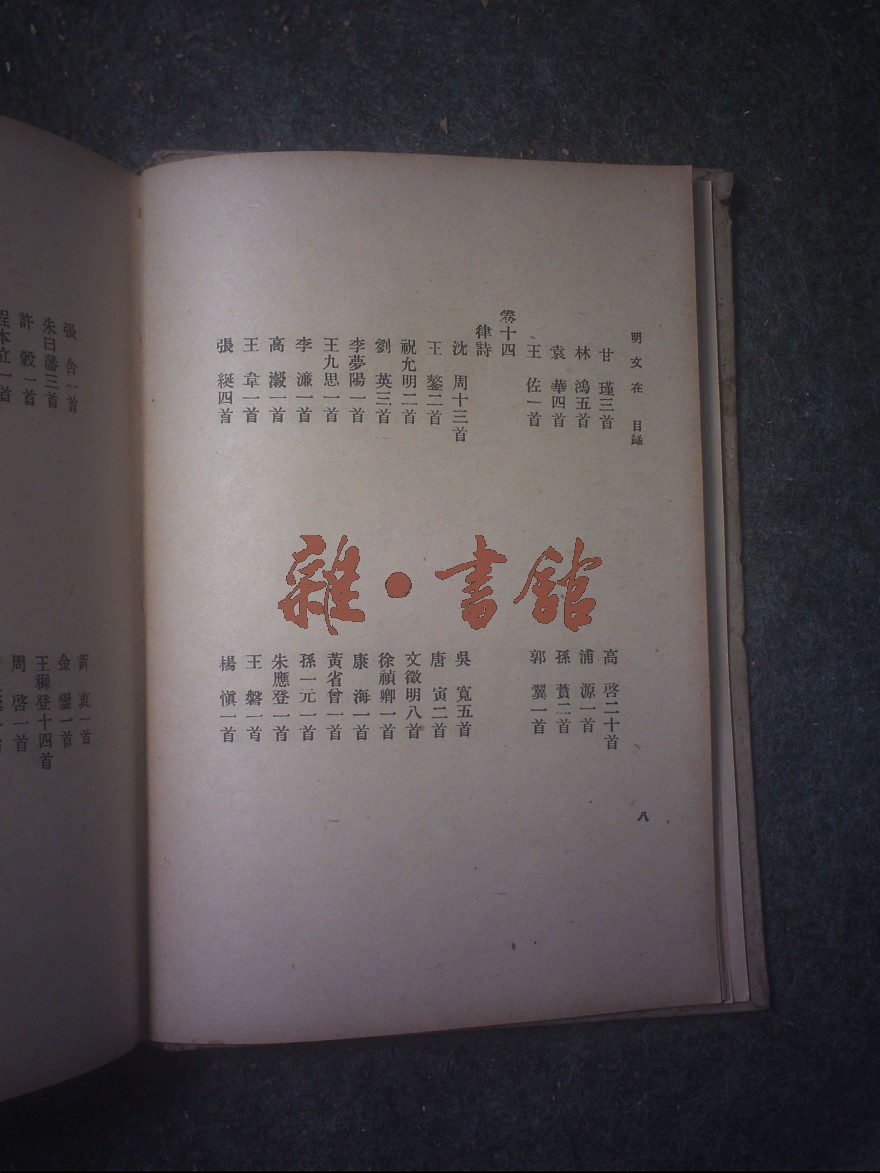 明文在 目錄
甘瑾三首
林鴻五首
袁華四首
王佐一首
卷十四
律詩
沈周十三首
王鏊二首
祝允明二首
劉英三首
李夢陽一首
王九思一首
李濂一首
高瀔一首
王韋一首
張綖四首
高啓二十首
浦源一首
孫蕡二首
郭翼一首
吳寬五首
唐寅二首
文徵明八首
徐禎卿一首
康海一首
黃省曾一首
孫一元一首
朱應登一首
王磐一首
楊愼一首
八
張含一首
朱曰藩三首
許穀一首
程本立一首
黃衷一首
金鑾一首
王穉登十四首
周啓一首
雜·書館